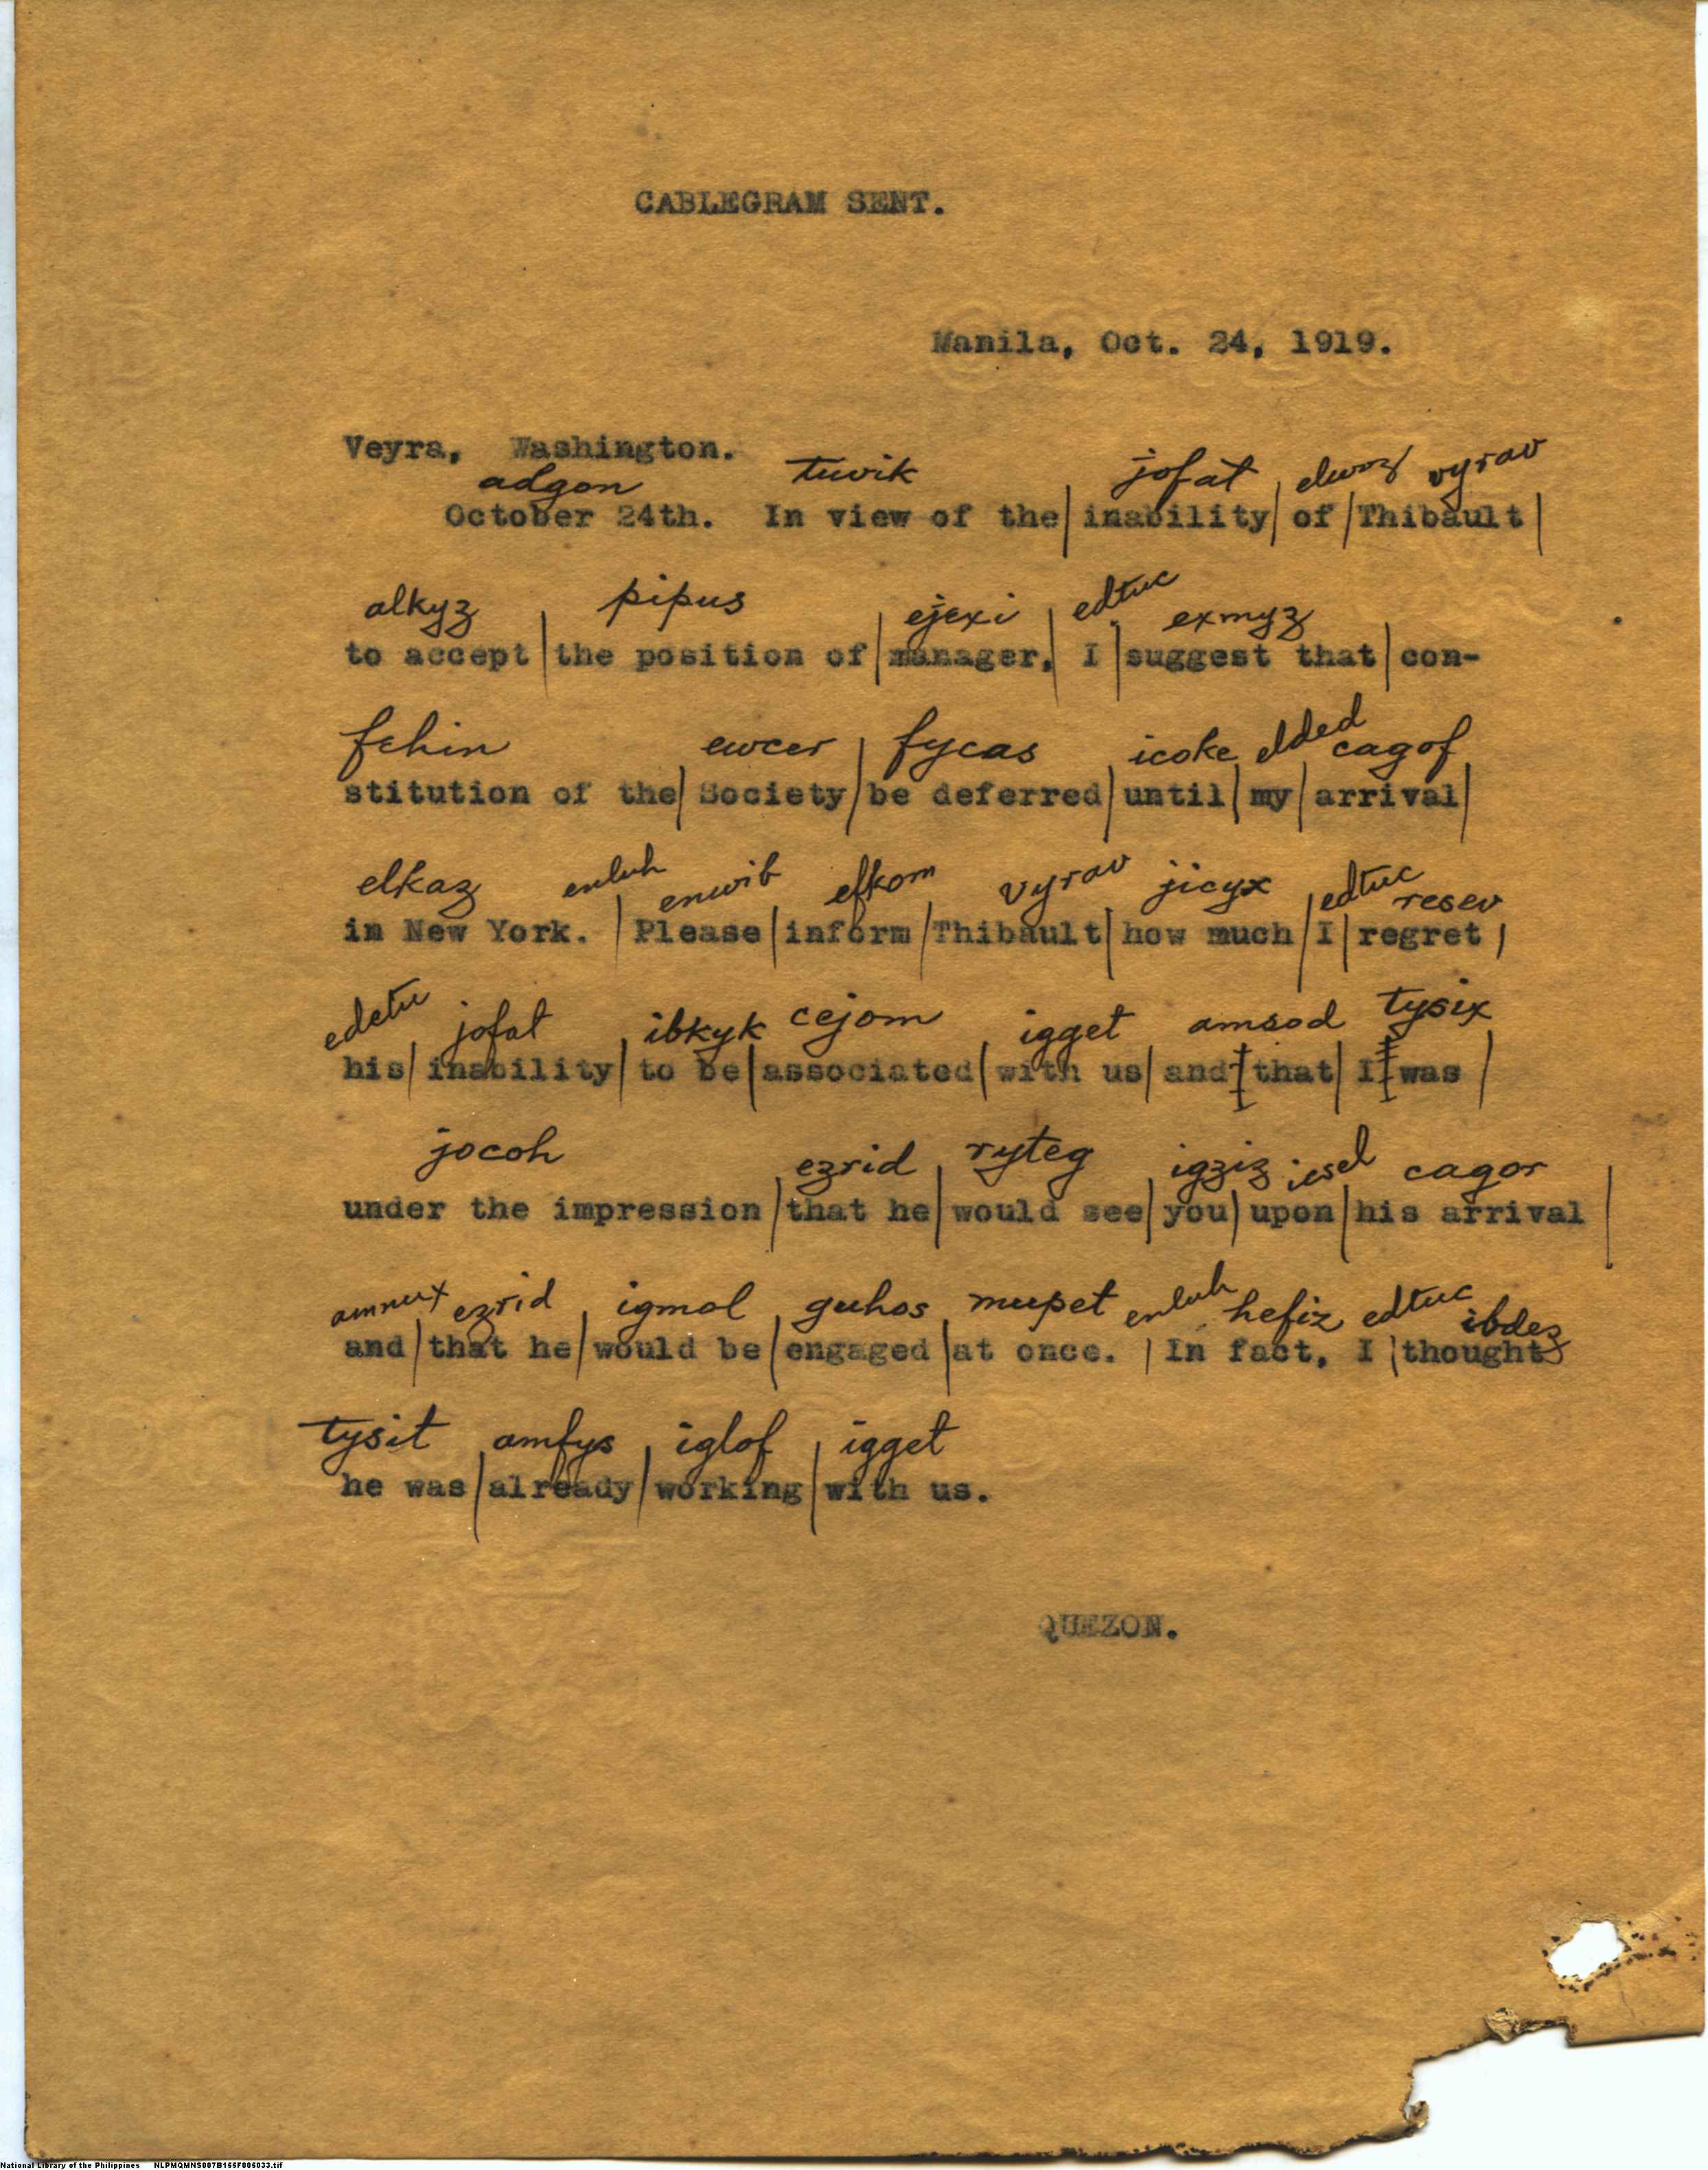 CABLEGRAM SENT.
Manila, Oct. 24, 1919.
Veyra, Washington.
adgon tuvik jofat vyrav
October 24th. In view of the inability of Thibault
alkyz pipus ejexi edtuc exmyz
to accept the position of manager, I suggest that con-
fehin ewcer fycas icoke elded cagof
stitution of the Society be deferred until my arrival
elkaz enluh enwib efkom vyrav jicyx edtuc resev
in New York. Please inform Thibault how much I regret
edetu jofat ibkyk cejom igget amsod tysix
his inability to be associated with us and that I was
jocoh ezrid ryteg igziz iesel cagor
under the impression that he would see you upon his arrival
amnux ezrid igmol guhos mupet enluh hefiz edtuc ibdez
and that he would be engaged at once. In fact, I thought
tysit amfys iglof igget
he was already working with us.
QUEZON.
National Library of the Philippines NLPMQMNS007B155F005033.tif